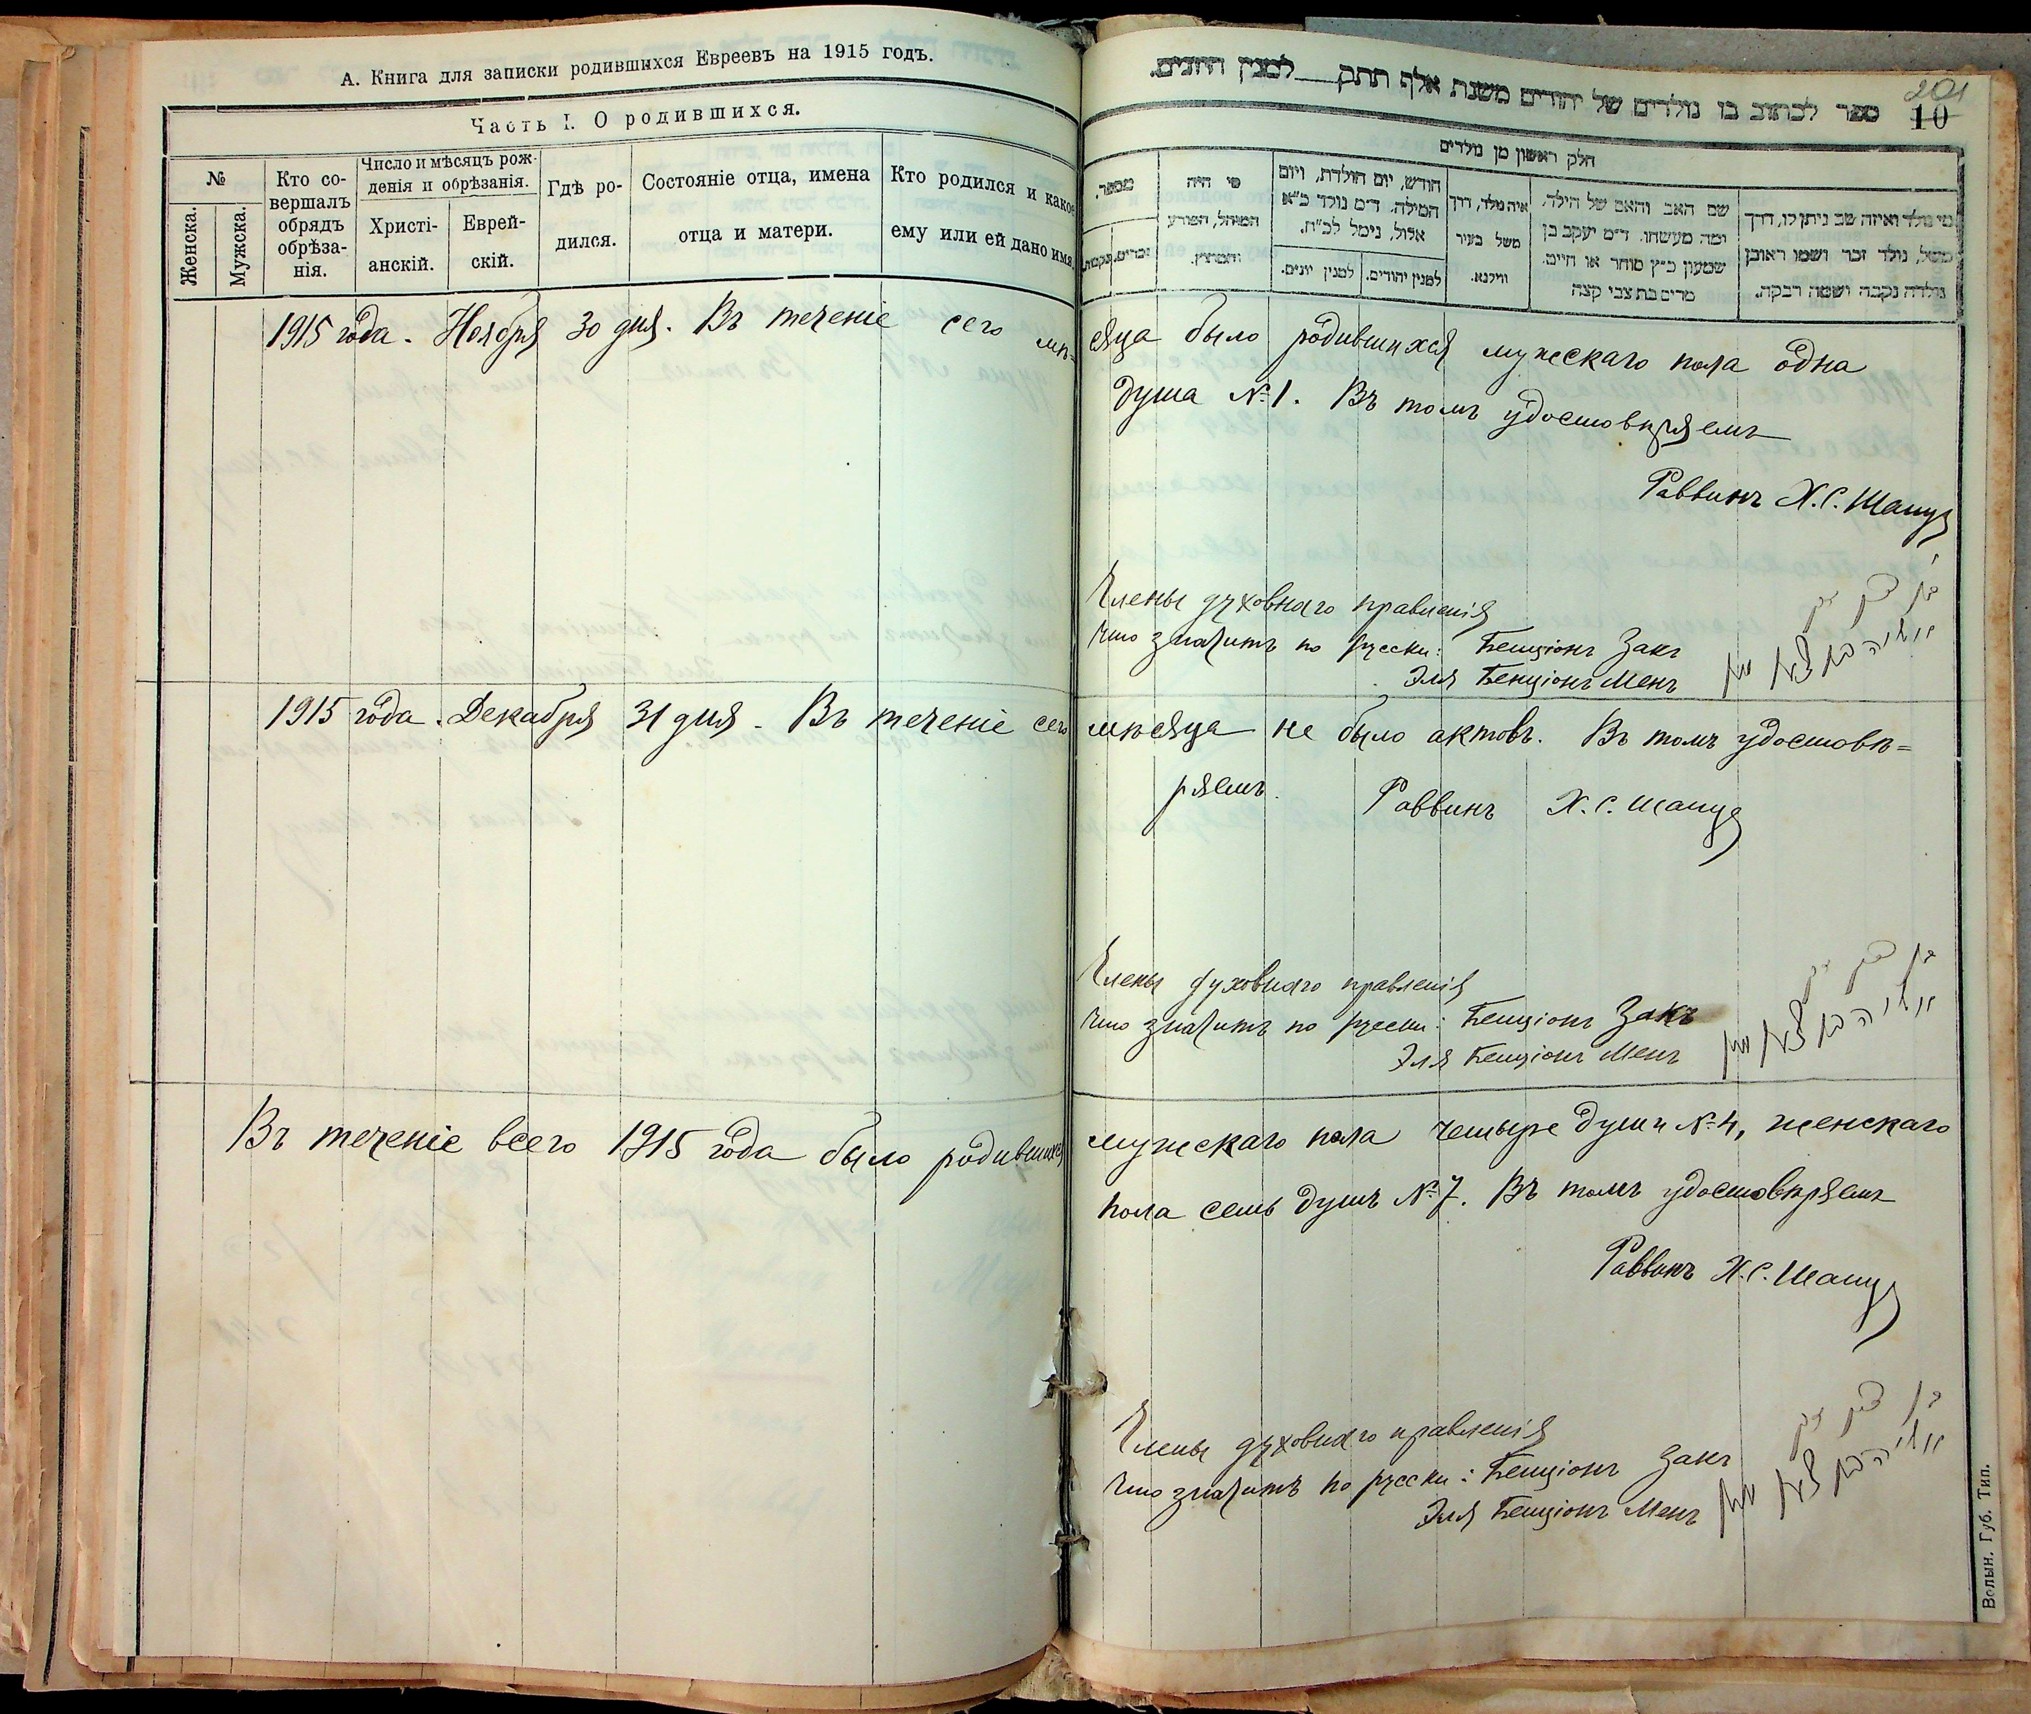 А. Книга для записки родившихся Евреевъ на 1915 годъ.
Часть I. О родившихся.
№
Женска.
Мужска.
Кто со-
вершалъ
обрядъ
обрѣза-
нія.
Число и мѣсяцъ рож-
денія и обрѣзанія.
Христі-
анскій.
Еврей-
скій.
Гдѣ ро-
дился.
Состояніе отца, имена
отца и матери.
Кто родился и какое
ему или ей дано имя.
201
10
ספר לכתוב בו נולדים של יהודים משנת אלף תתק למנין היונים.
חלק ראשון מן נולדים
מספר.
זכרים.
נקבות.
מי היה
המוהל, הפורע
והמוצץ.
חודש, יום הולדת, ויום
המילה. ד״מ נולד כ״א
אלול, נימל לכ״ח.
למנין יהודים.
למנין יונים.
איה נולד, דרך
משל בעיר
ווילנא.
שם האב והאם של הילד,
ומה מעשהו. ד״מ יעקב בן
שמעון כ״ץ סוחר או חיים.
מרים בת צבי קצה
מי נולד ואיזה שם ניתן לו, דרך
משל, נולד זכר ושמו ראובן
נולדה נקבה ושמה רבקה.
1915 года. Ноября 30 дня. Въ теченіе сего мѣ=
сяца было родившихся мужскаго пола одна
душа №1. Въ томъ удостовѣряемъ
Раввинъ Х.С. Шапир
Члены духовнаго правленія
что значитъ по русски: Бенціонъ Закъ
Эля Бенціонъ Менъ
1915 года. Декабря 31 дня. Въ теченіе сего
мѣсяца не было актовъ. Въ томъ удостовѣ=
ряемъ. Раввинъ Х.С. Шапир
Члены духовнаго правленія
что значитъ по русски: Бенціонъ Закъ
Эля Бенціонъ Менъ
Въ теченіе всего 1915 года было родившихся
мужскаго пола четыре души №4, женскаго
пола семь душъ №7. Въ томъ удостовѣряемъ
Раввинъ Х.С. Шапир
Члены духовнаго правленія
что значитъ по русски: Бенціонъ Закъ
Эля Бенціонъ Менъ
Волын. Губ. Тип.